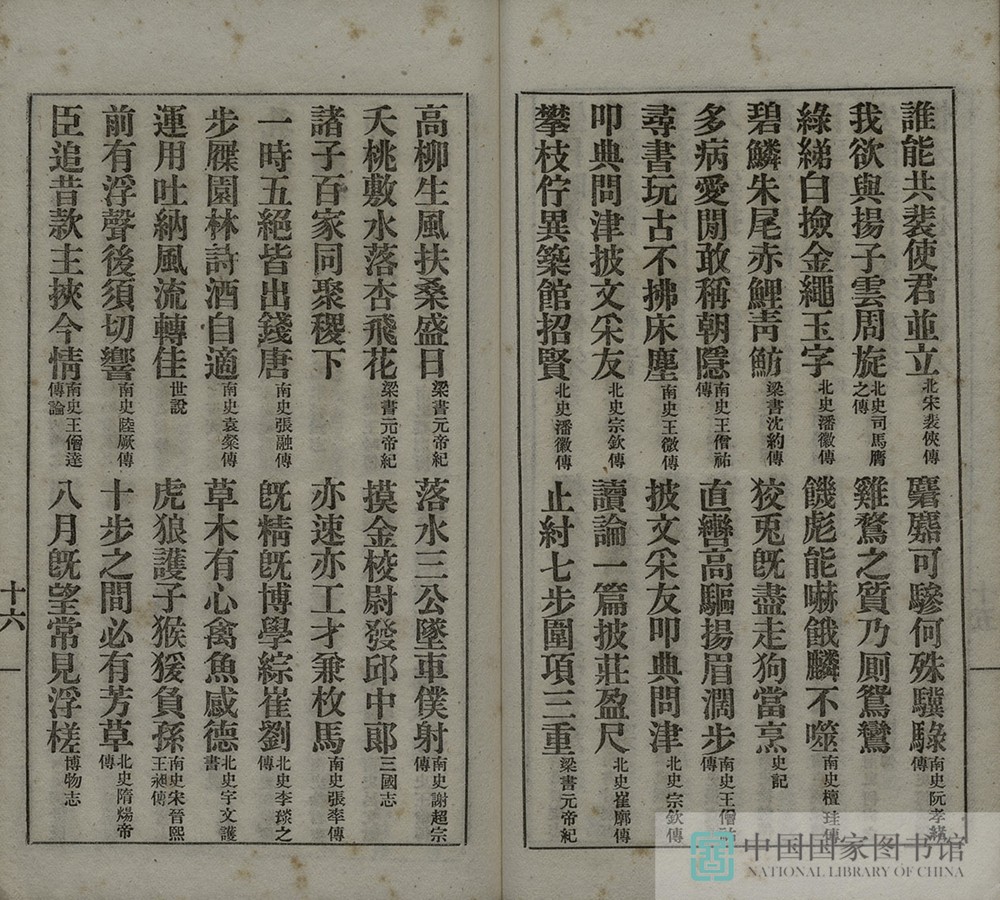 誰能共裴使君並立北宋裴俠傳 麏麚可驂何殊驥騄南史阮孝緒傳
我欲與揚子雲周旋北史司馬膺之傳 雞鶩之質乃厠鴛鸞
綠綈白撿金繩玉字北史潘徽傳 饑彪能嚇餓麟不噬南史檀珪傳
碧鱗朱尾赤鯉靑魴梁書沈約傳 狡兎旣盡走狗當烹史記
多病愛閒敢稱朝隱南史王僧祐傳 直轡高驅揚眉濶步南史王僧祐傳
尋書玩古不拂床塵南史王微傳 披文采友叩典問津北史宗欽傳
叩典問津披文采友北史宗欽傳 讀論一篇披莊盈尺北史崔廓傳
攀枝佇異築館招賢北史潘徽傳 止紂七步圍項三重梁書元帝紀
高柳生風扶桑盛日梁書元帝紀 落水三公墜車僕射南史謝超宗傳
夭桃敷水落杏飛花梁書元帝紀 摸金校尉發邱中郞三國志
諸子百家同聚稷下 亦速亦工才兼枚馬南史張率傳
一時五絕皆出錢唐南史張融傳 旣精旣博學綜崔劉北史李琰之傳
步屧園林詩酒自適南史袁粲傳 草木有心禽魚感德北史宇文護書
運用吐納風流轉佳世說 虎狼護子猴猨負孫南史宋晉熙王昶傳
前有浮聲後須切響南史陸厥傳 十步之間必有芳草北史隋煬帝傳
臣追昔款主挾今情南史王僧達傳論 八月旣望常見浮槎博物志
十六
中国国家图书馆
NATIONAL LIBRARY OF CHINA